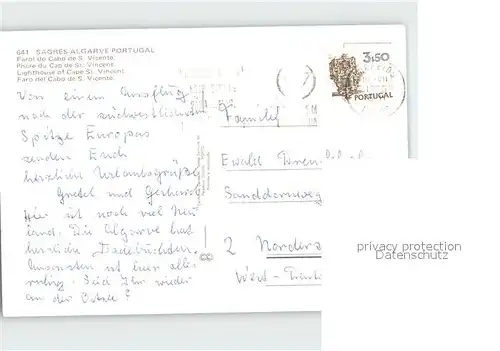 641 SAGRES ALGARVE PORTUGAL
Farol do Cabo de S. Vicente.
Phare du Cap de St. Vincent.
Lighthouse of Cape St. Vincent.
Faro del Cabo de S. Vicente.
3,50
PORTUGAL
Von einem Ausflug
nach der südwestlichsten
Spitze Europas
senden Euch
herzliche Urlaubsgrüße
Gretel und Gerhard
Hier ist noch viel Neu
land. Die Algarve hat
herrliche Badebuchten.
Ansonsten ist hier alles
ruhig. Seid Ihr wieder
an der Ostsee?
Familie
Ewald
Sanddornweg
2 Norders
West-
privacy protection
Datenschutz